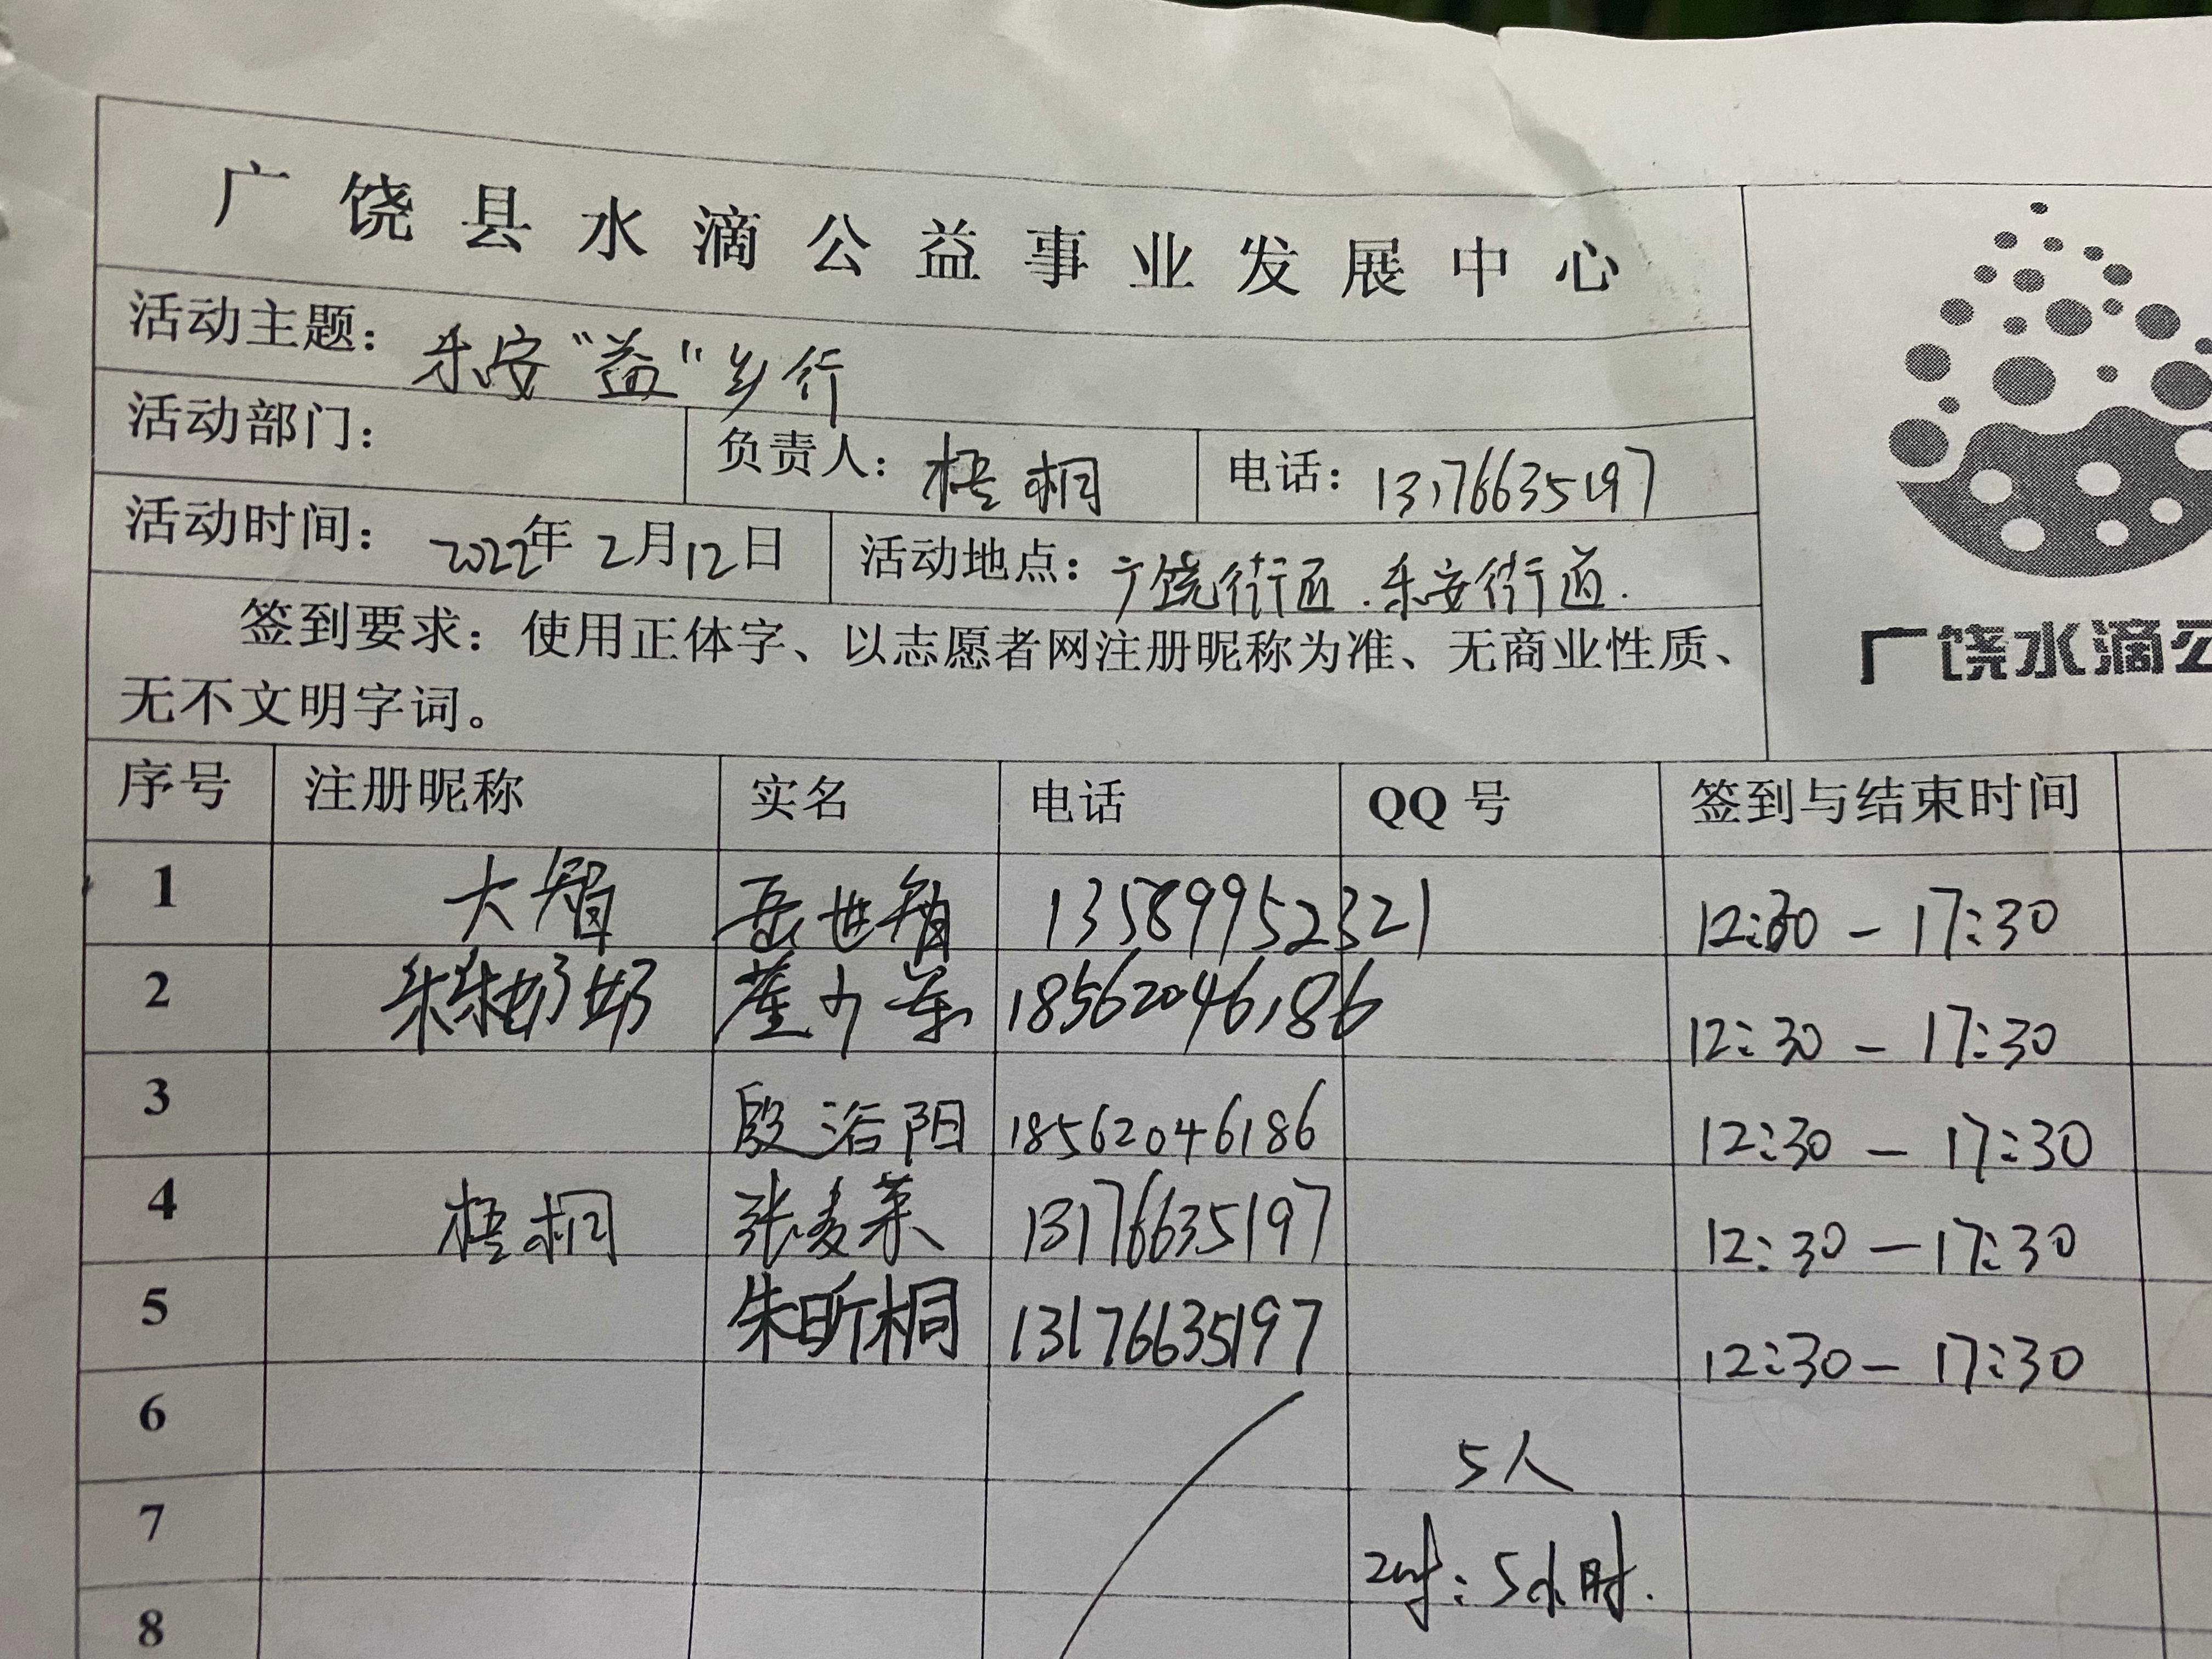 广饶县水滴公益事业发展中心
活动主题：乐安“益”乡行
活动部门：
负责人：梧桐
电话：13176635197
活动时间：2022年2月12日
活动地点：广饶街道.乐安街道.
签到要求：使用正体字、以志愿者网注册昵称为准、无商业性质、
无不文明字词。
广饶水滴公
序号 注册昵称 实名 电话 QQ号 签到与结束时间
1 大智 岳世智 13589952321 12:30-17:30
2 朱朱奶奶 18562046186 12:30-17:30
3 段浴阳 18562046186 12:30-17:30
4 梧桐 13176635197 12:30-17:30
5 朱昕桐 13176635197 12:30-17:30
6
5人
7
5小时.
8